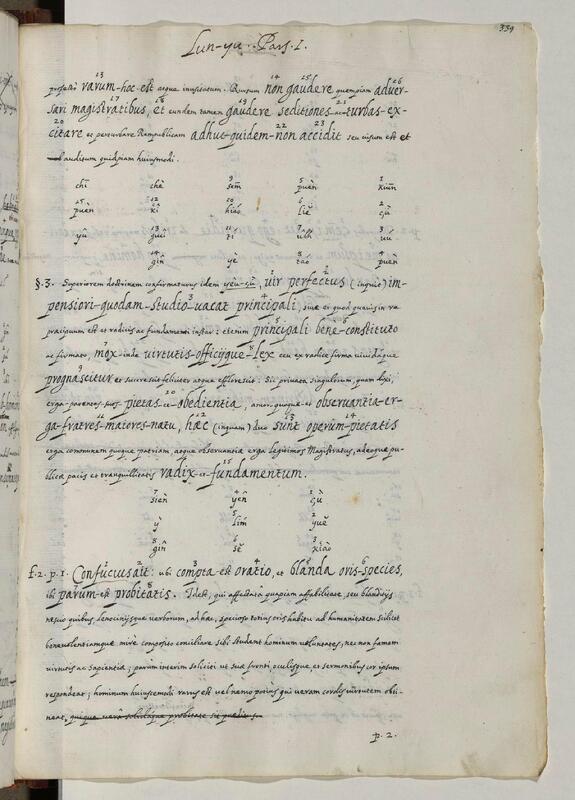 339
Lun-yu. Pars. I.
profecto rarum-hoc-est atque inusitatum. Rursum non gaudere quempiam adver-
sari magistratibus, et eundem tamen gaudere seditiones-ac-turbas-ex-
citare et perturbare Rempublicam adhuc-quidem-non accidit seu visum est et
auditum quidpiam huiusmodi.
chī chè sem̄ puèn kiūn
puèn kì hiáo liě çù
yù guêi tí ulh uú
gîn yè táo puèn
§.3. Superiorem doctrinam confirmaturus idem yeu-çù, vir perfectus (inquit) im-
pensiori-quodam-studio vacat principali, sive ei quod quavis in re
praecipuum est et radicis ac fundamenti instar: etenim principali bene-constituto
ac firmato, mox-inde virtutis-officijque-lex ceu ex radice firma vividaque
prognascitur et succrescit feliciter atque efflorescit: Sic privata singulorum, quam dixi,
erga-parentes-suos pietas-et obedientia, amor quoque et observantia-er-
ga-fratres-maiores-natu, haec (inquam) duo sunt operum-pietatis
erga communem quoque patriam, atque observantiae erga legitimos Magistratus, adeoque pu-
blicae pacis et tranquillitatis radix-et-fundamentum.
sién yên çù
ỳ lím yuě
gîn sě xiào
f.2. p.1. Confucius ait: ubi compta est oratio, et blanda oris-species,
ibi parum-est probitatis. Id est, qui affectata quapiam affabilitate, seu blanditijs
nescio quibus lenocinijsque verborum, ad haec, specioso totius oris habitu ad humanitatem scilicet
benevolentiamque mirè composito conciliare sibi student hominum voluntates, nec non famam
virtutis ac sapientiae; parum interim soliciti ut suae fronti oculisque, et sermonibus cor ipsum
respondeat; hominum huiuscemodi rarus est vel nemo potius qui veram cordis virtutem obti-
neat,
p. 2.